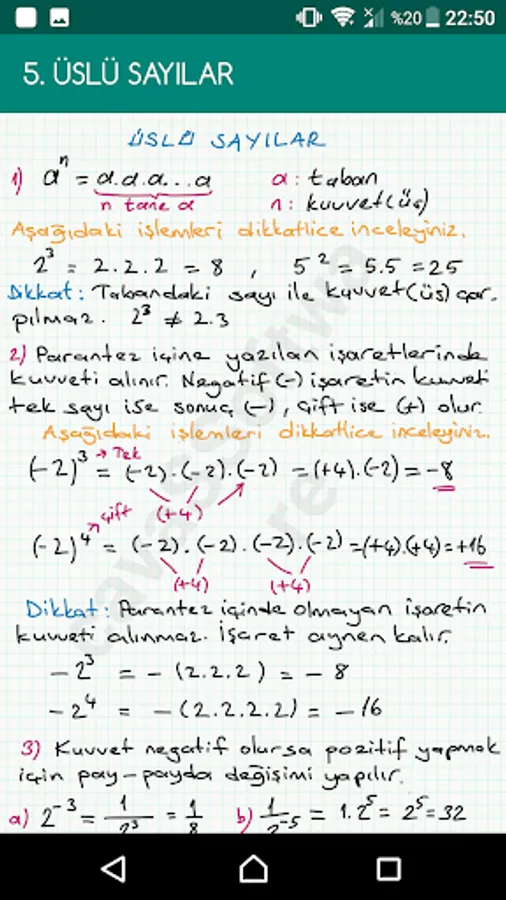 %20 22:50
5. ÜSLÜ SAYILAR
ÜSLÜ SAYILAR
1) aⁿ = a.a.a...a a: taban
n tane a n: kuvvet(üs)
Aşağıdaki işlemleri dikkatlice inceleyiniz.
2³ = 2.2.2 = 8 , 5² = 5.5 = 25
Dikkat: Tabandaki sayı ile kuvvet(üs) çar-
pılmaz. 2³ ≠ 2.3
2) Parantez içine yazılan işaretlerinde
kuvveti alınır. Negatif (-) işaretin kuvveti
tek sayı ise sonuç (-), çift ise (+) olur.
Aşağıdaki işlemleri dikkatlice inceleyiniz.
→ Tek
(-2)³ = (-2).(-2).(-2) = (+4).(-2) = -8
(+4)
→ çift
(-2)⁴ = (-2).(-2).(-2).(-2) = (+4).(+4) = +16
(+4) (+4)
Dikkat: Parantez içinde olmayan işaretin
kuvveti alınmaz. İşaret aynen kalır.
-2³ = -(2.2.2) = -8
-2⁴ = -(2.2.2.2) = -16
3) Kuvvet negatif olursa pozitif yapmak
için pay-payda değişimi yapılır.
a) 2⁻³ = 1/2³ = 1/8 b) 1/2⁻⁵ = 1.2⁵ = 2⁵ = 32